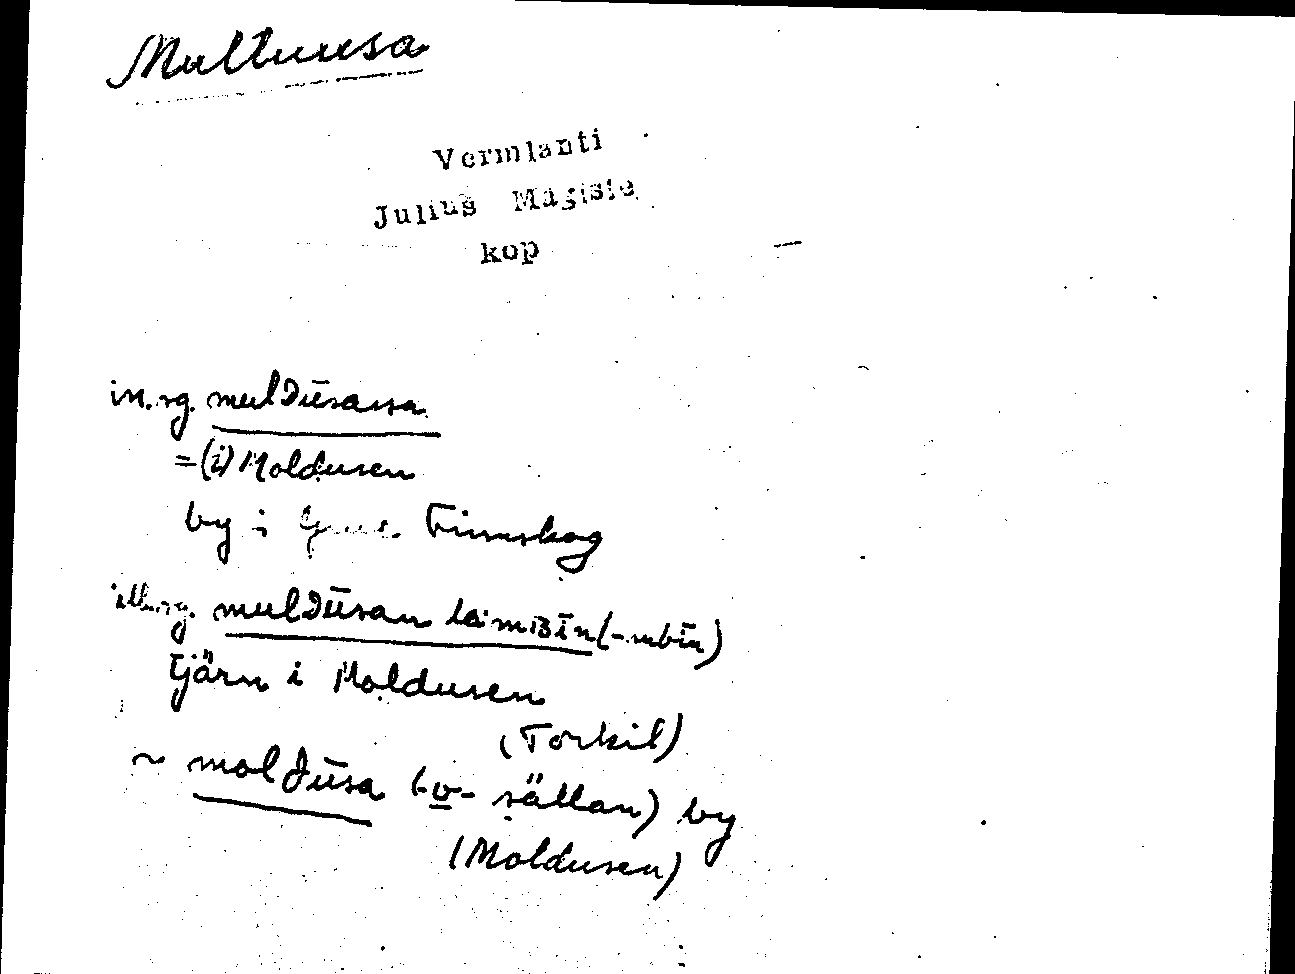 Multuusa
Vermlanti
Julius Mägiste
kop
in.sg. mulDūsassa
=(i) Moldusen
by i Finnskog
ill.sg. mulDūsan laimBīn (-mbīn)
tjärn i Moldusen
(Torkil)
~ molDūsa (-o- sällan) by
(Moldusen)